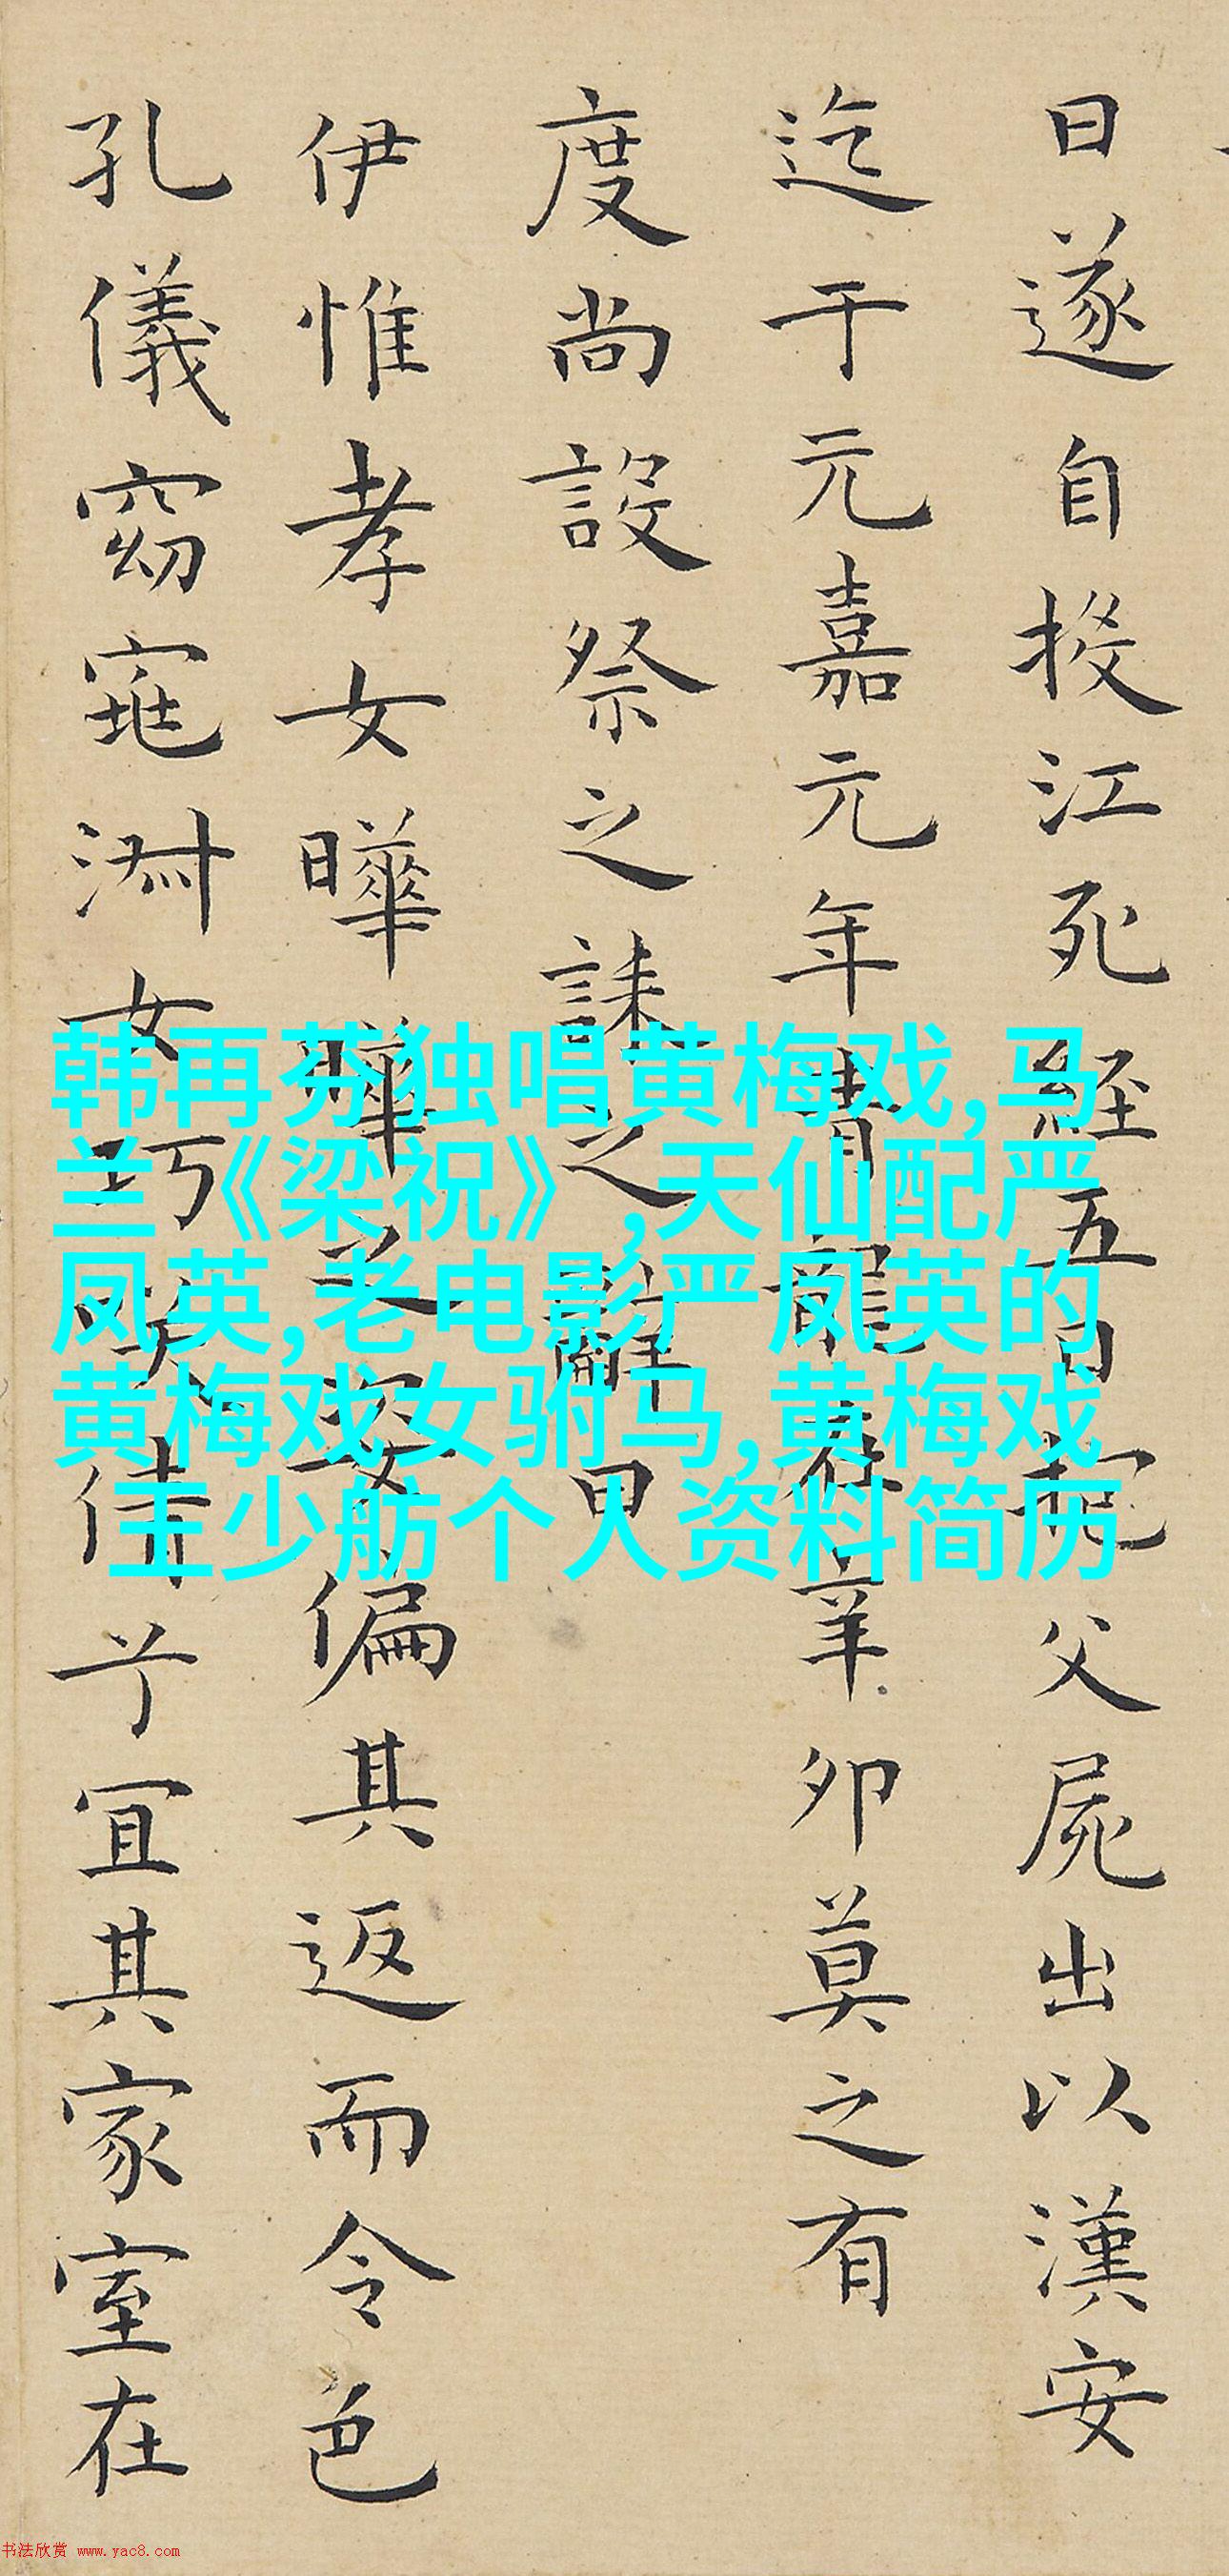 日遂自投江死經五日抱父屍出以漢安
迄于元嘉元年青龍在辛卯莫之有
度尚設祭之誄之辭曰
伊惟孝女曄曄之姿偏其返而令色
孔儀窈窕淑女巧笑倩兮宜其家室在
韩再芬独唱黄梅戏,马
兰《梁祝》,天仙配严
凤英,老电影严凤英的
黄梅戏女驸马,黄梅戏
王少舫个人资料简历
书法欣赏 www.yac8.com